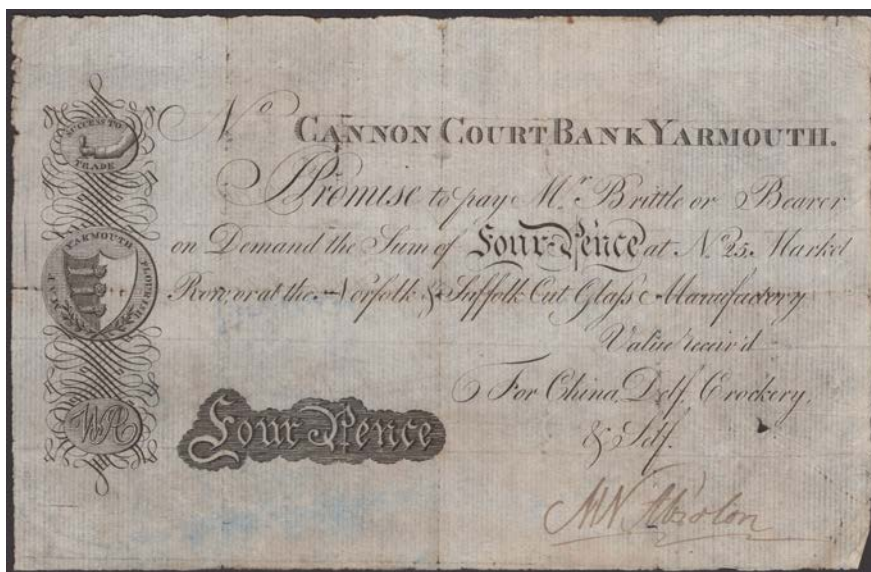 SUCCESS TO
TRADE
MAY YARMOUTH FLOURISH
WA
No CANNON COURT BANK YARMOUTH.
I Promise to pay Mr. Brittle or Bearer
on Demand the Sum of Four Pence at No. 25, Market
Row, or at the Norfolk & Suffolk Cut Glass Manufactory
Value receiv'd
For China, Delf, Crockery,
& Self.
Four Pence
Absolon